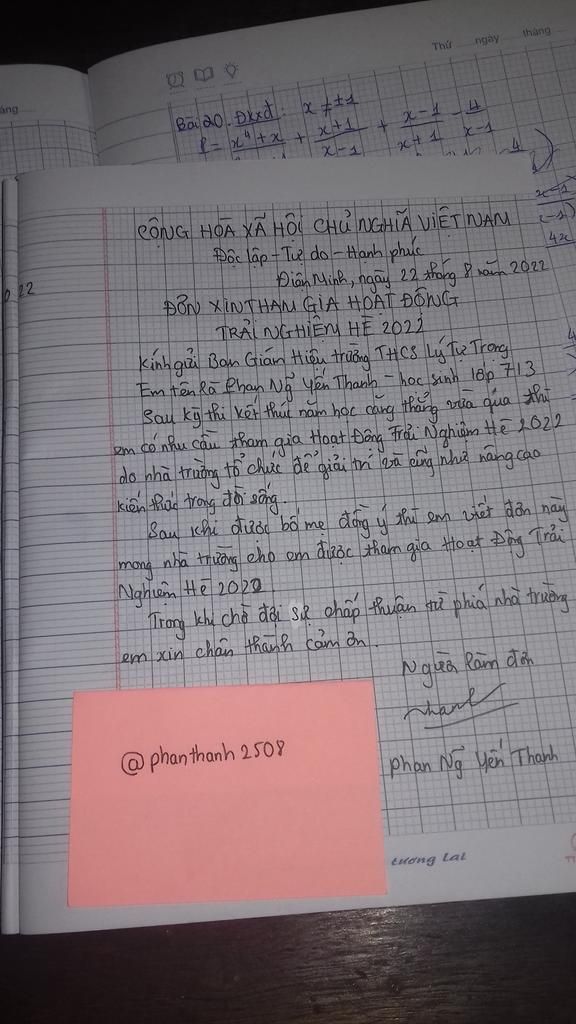 Thứ ngày tháng
Bài 20. Đkxđ: x ≠ ±1
P = x⁴ + x + x+1 + x-1 - 4
x-1 x+1 x-1
22
CỘNG HÒA XÃ HỘI CHỦ NGHĨA VIỆT NAM
Độc lập - Tự do - Hạnh phúc
Điện Minh, ngày 22 tháng 8 năm 2022
ĐƠN XIN THAM GIA HOẠT ĐỘNG
TRẢI NGHIỆM HÈ 2022
Kính gửi Ban Giám Hiệu trường THCS Lý Tự Trọng
Em tên là Phan Ng̃ Yến Thanh - học sinh lớp 7/3
Sau kỳ thi kết thúc năm học căng thẳng vừa qua thì
em có nhu cầu tham gia Hoạt Động Trải Nghiệm Hè 2022
do nhà trường tổ chức để giải trí và cũng như nâng cao
kiến thức trong đời sống.
Sau khi được bố mẹ đồng ý thì em viết đơn này
mong nhà trường cho em được tham gia Hoạt Động Trải
Nghiệm Hè 2022.
Trong khi chờ đợi sự chấp thuận từ phía nhà trường
em xin chân thành cảm ơn.
Người làm đơn
Thanh
Phan Ng̃ Yến Thanh
@phanthanh2508
tương lai